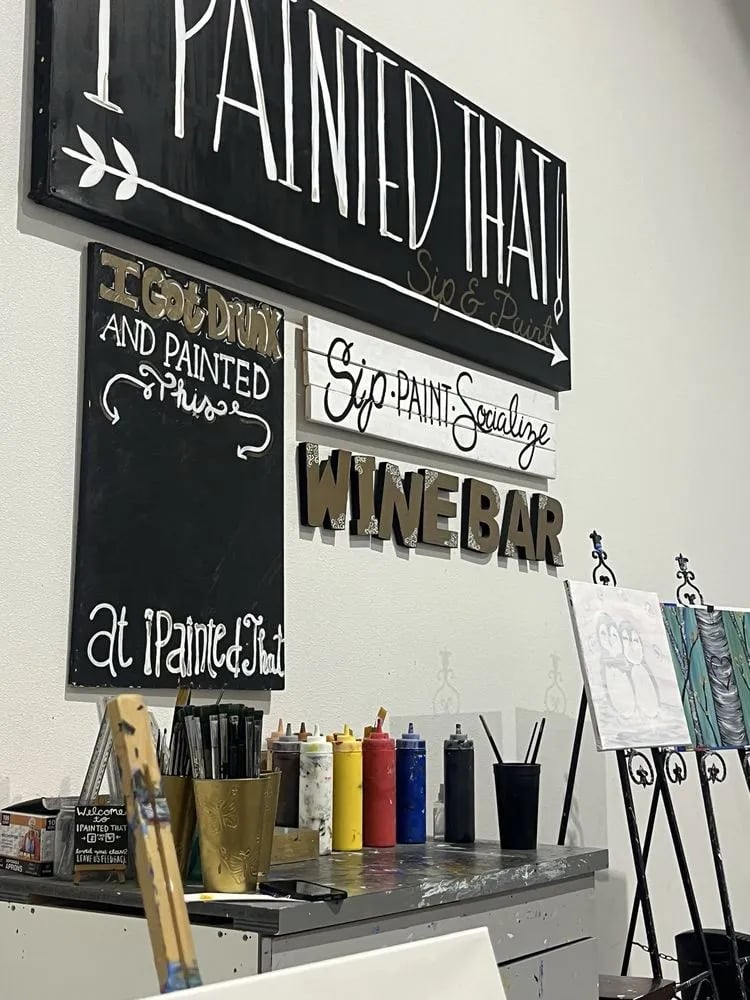 I PAINTED THAT!
Sip & Paint
I Got DRUNK
AND PAINTED
This
at iPaintedThat
Sip · PAINT · Socialize
WINE BAR
Welcome
to
I PAINTED THAT
loved your class?
LEAVE US FEEDBACK
APRONS